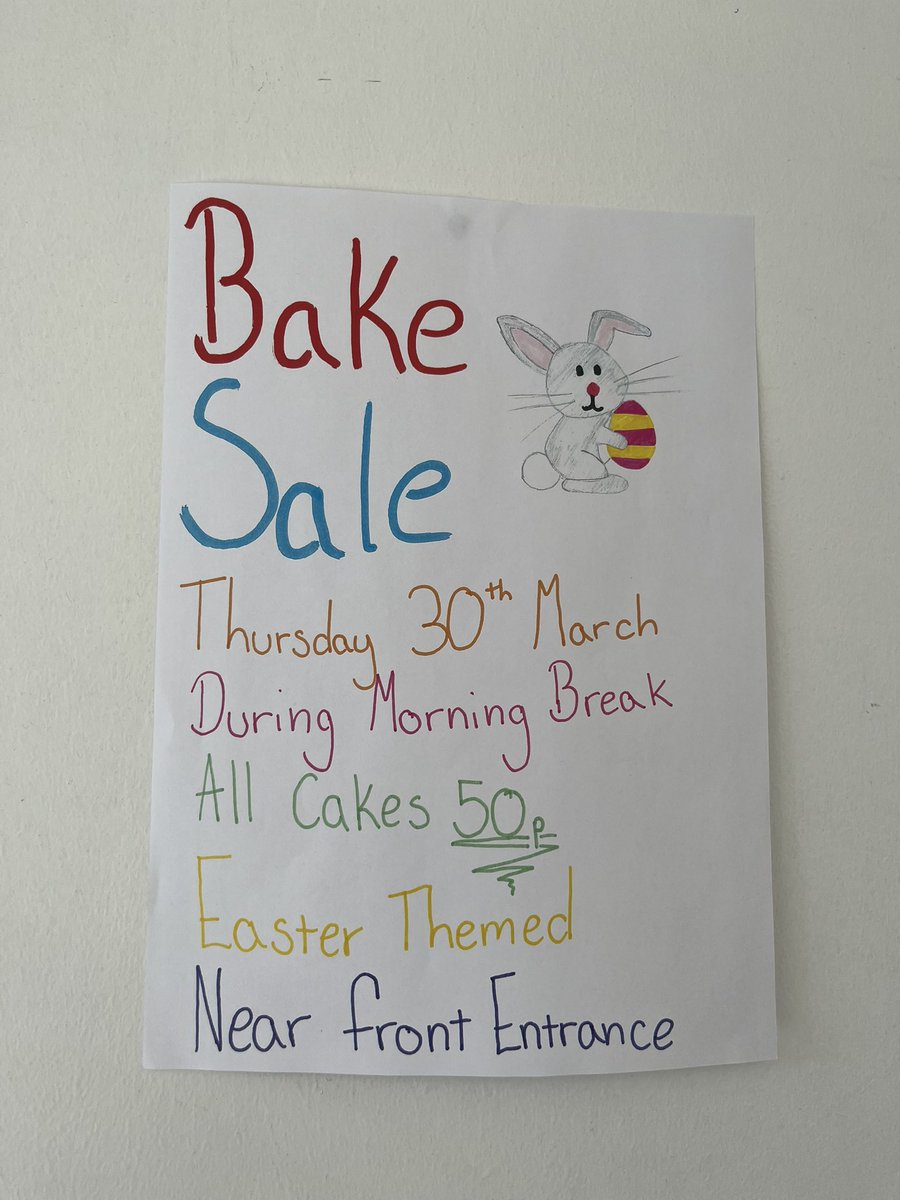 Bake
Sale
Thursday 30th March
During Morning Break
All Cakes 50p
Easter Themed
Near front Entrance